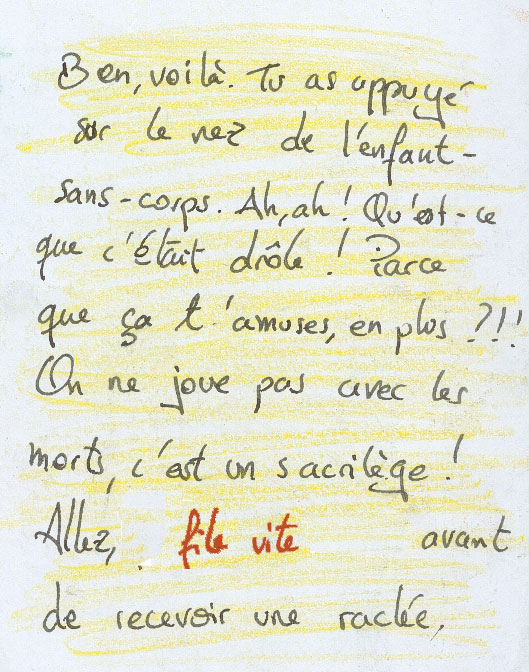 Ben, voilà. Tu as appuyé
sur le nez de l'enfant-
sans-corps. Ah, ah ! Qu'est-ce
que c'était drôle ! Parce
que ça t'amuses, en plus ?!!!
On ne joue pas avec les
morts, c'est un sacrilège !
Allez, file vite avant
de recevoir une raclée.